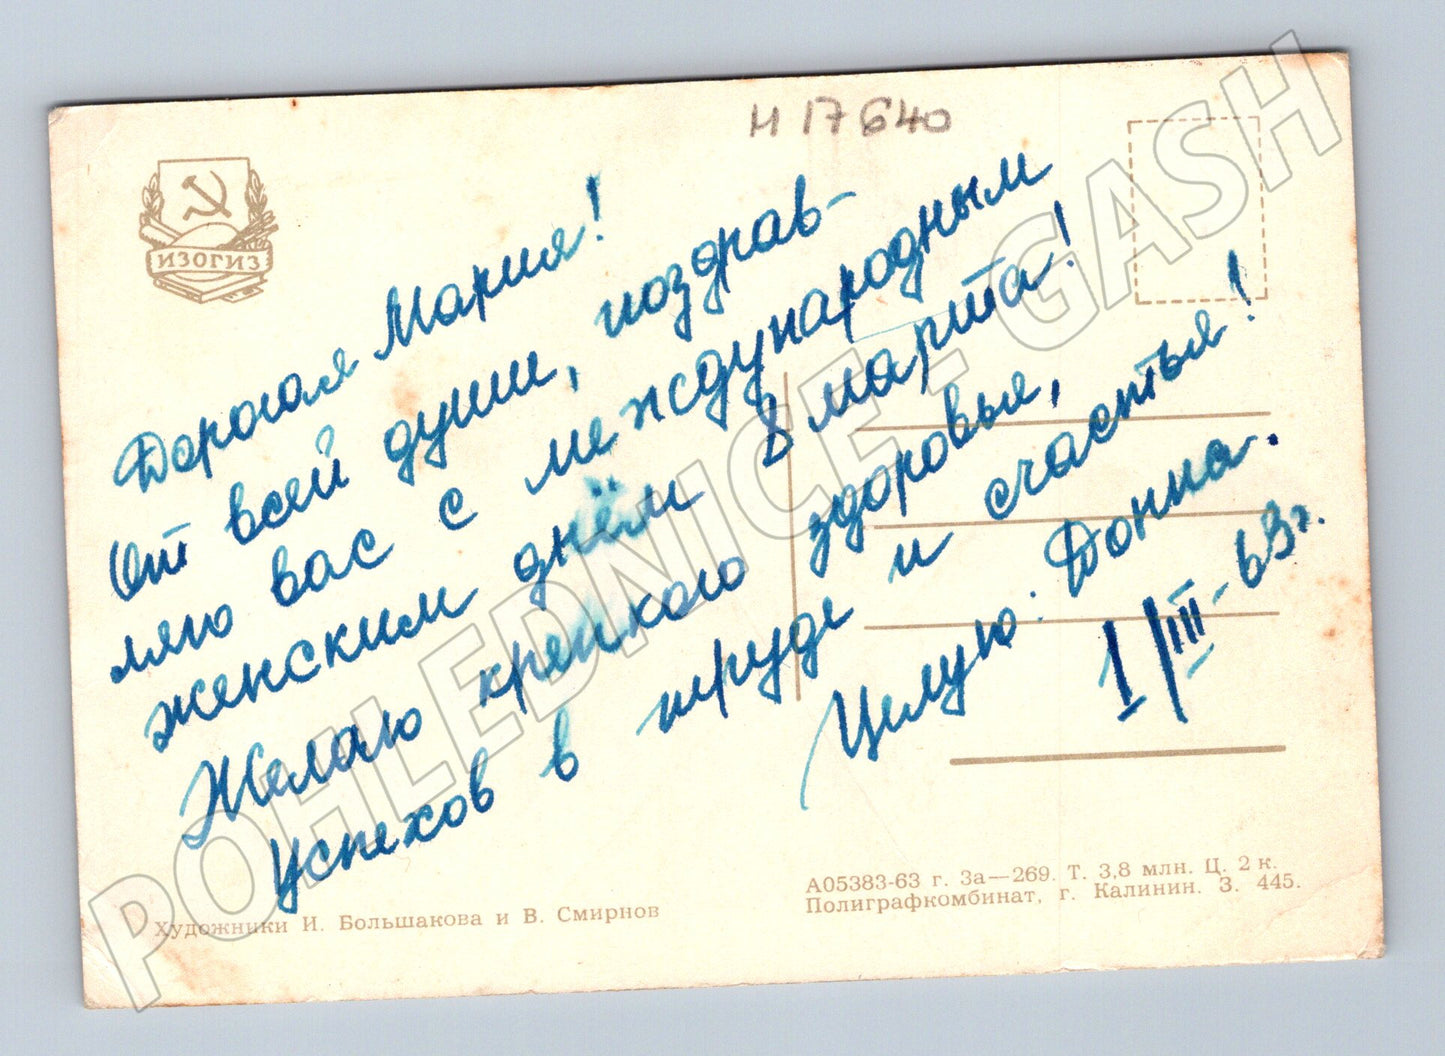 И 17640
ИЗОГИЗ
Дорогая Мария!
От всей души, поздрав-
ляю вас с международным
женским днём 8 марта!
Желаю крепкого здоровья,
Успехов в труде и счастья!
Целую: Донна.
1/III-63г.
Художники И. Большакова и В. Смирнов
А05383-63 г. За—269. Т. 3,8 млн. Ц. 2 к.
Полиграфкомбинат, г. Калинин. З. 445.
POHLEDNICE - GASH